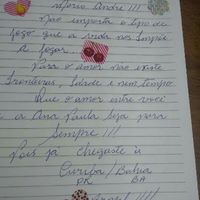 André !!!
Não importa o tipo de
jogo que a vida nos impõe
a jogar.
Para o amor não existe
fronteiras, idade e nem tempo
Que o amor entre você
e a Ana Paula seja para
Sempre !!!
Pois já chegaste à
Curitiba / Bahia
PR BA